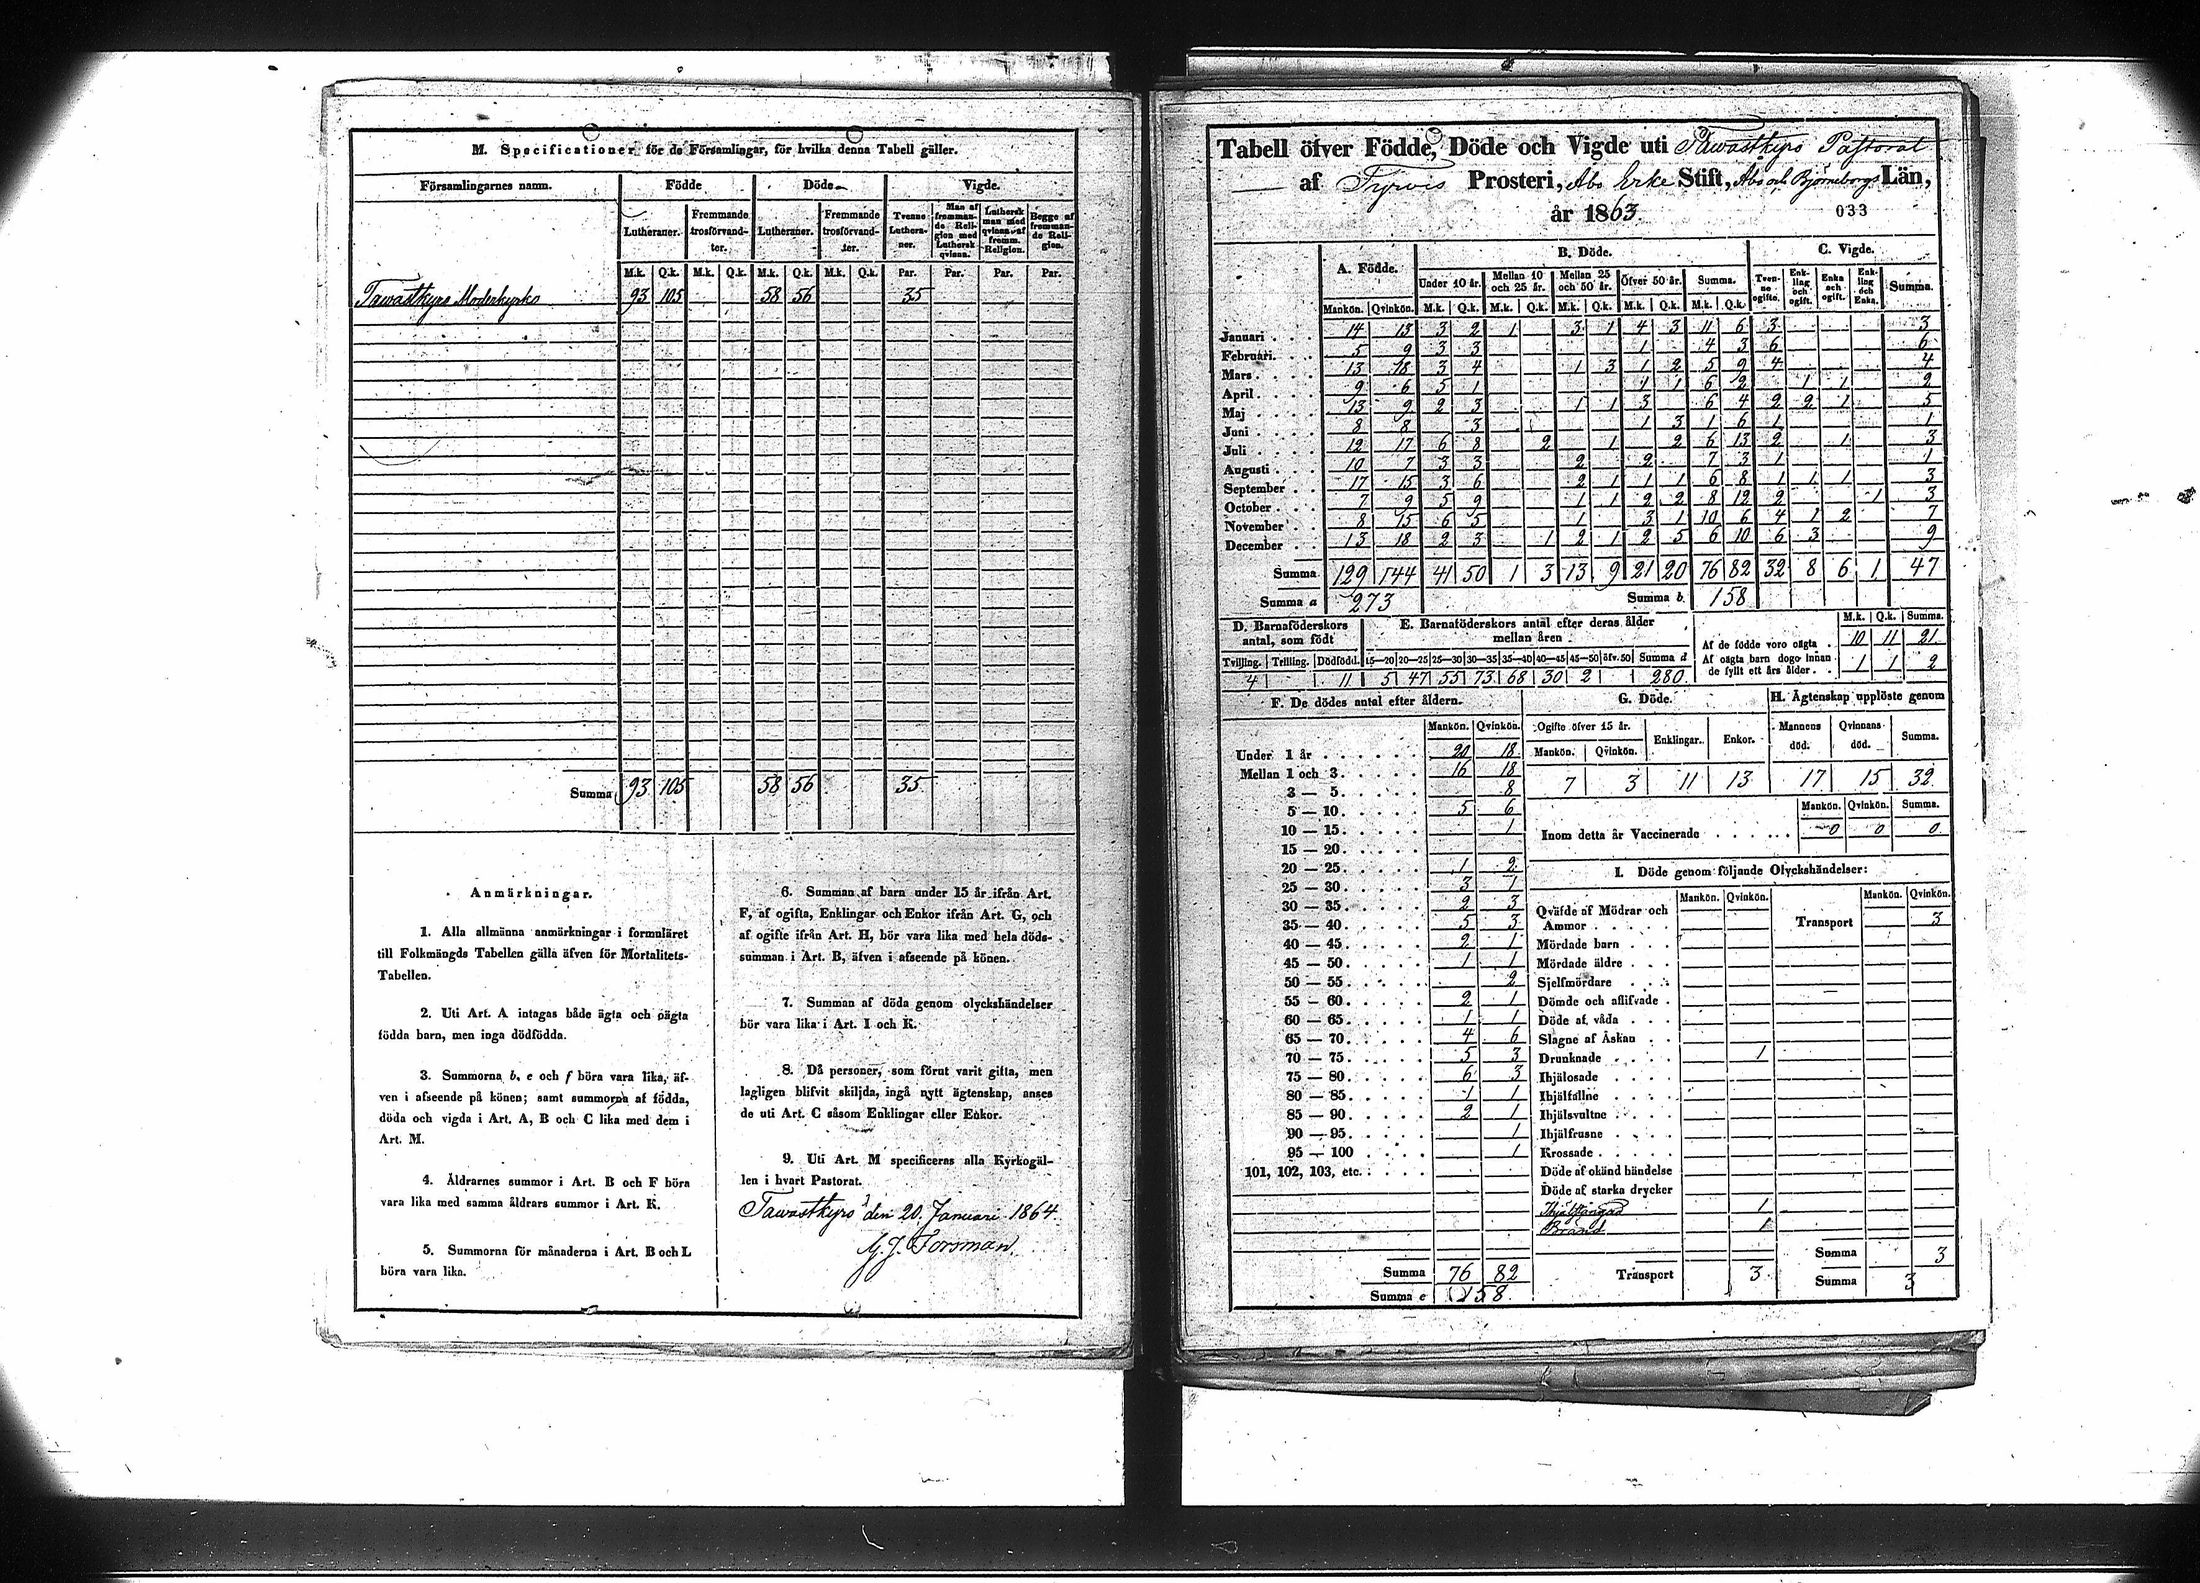 M. Specificationer för de Församlingar, för hvilka denna Tabell gäller.
Församlingarnes namn. Födde Döde Vigde.
Lutheraner. Fremmande trosförvandter. Lutheraner. Fremmande trosförvandter. Tvenne Lutheraner. Man af frammande Religion med Luthersk qvinna. Luthersk man med qvinna af fremm. Religion. Begge af fremmande Religion.
M.k. Q.k. M.k. Q.k. M.k. Q.k. M.k. Q.k. Par. Par. Par. Par.
Tawastkyro Moderkyrko 93 105 58 56 35
Summa 93 105 58 56 35
Anmärkningar.
1. Alla allmänna anmärkningar i formuläret
till Folkmängds Tabellen gälla äfven för Mortalitets-
Tabellen.
2. Uti Art. A intagas både ägta och oägta
födda barn, men inga dödfödda.
3. Summorna b, e och f böra vara lika, äf-
ven i afseende på könen; samt summorna af födda,
döda och vigda i Art. A, B och C lika med dem i
Art. M.
4. Åldrarnes summor i Art. B och F böra
vara lika med samma åldrars summor i Art. K.
5. Summorna för månaderna i Art. B och L
böra vara lika.
6. Summan af barn under 15 år ifrån Art.
F, af ogifta, Enklingar och Enkor ifrån Art. G, och
af ogifte ifrån Art. H, bör vara lika med hela döds-
summan i Art. B, äfven i afseende på könen.
7. Summan af döda genom olyckshändelser
bör vara lika i Art. I och K.
8. Då personer, som förut varit gifta, men
lagligen blifvit skiljda, ingå nytt ägtenskap, anses
de uti Art. C såsom Enklingar eller Enkor.
9. Uti Art. M specificeras alla Kyrkogäl-
len i hvart Pastorat.
Tawastkyro den 20. Januari 1864.
G. J. Forsman.
Tabell öfver Födde, Döde och Vigde uti Tawastkyro Pastorat
af Tyrvis Prosteri, Åbo Erke Stift, Åbo och Björneborgs Län,
år 1863. 033
A. Födde. B. Döde. C. Vigde.
Under 10 år. Mellan 10 och 25 år. Mellan 25 och 50 år. Öfver 50 år. Summa. Tvenne ogifte. Enkling och ogift. Enka och ogift. Enkling och Enka. Summa.
Mankön. Qvinkön. M.k. Q.k. M.k. Q.k. M.k. Q.k. M.k. Q.k. M.k. Q.k.
Januari 14 13 3 2 1 3 1 4 3 11 6 3 3
Februari 5 9 3 3 1 4 3 6 6
Mars 13 18 3 4 1 3 1 2 5 9 4 4
April 9 6 5 1 1 1 6 2 1 1 2
Maj 13 9 2 3 1 1 3 6 4 2 2 1 5
Juni 8 8 3 1 3 1 6 1 1
Juli 12 17 6 8 2 1 2 6 13 2 1 3
Augusti 10 7 3 3 2 2 7 3 1 1
September 17 15 3 6 2 1 1 1 6 8 1 1 1 3
October 7 9 5 9 1 1 2 2 8 12 2 1 3
November 8 15 6 5 1 3 1 10 6 4 1 2 7
December 13 18 2 3 1 2 1 2 5 6 10 6 3 9
Summa 129 144 41 50 1 3 13 9 21 20 76 82 32 8 6 1 47
Summa a 273 Summa b. 158
D. Barnaföderskors antal, som födt
Tvilling. Trilling. Dödfödd.
4 11
E. Barnaföderskors antal efter deras ålder
mellan åren
15—20 20—25 25—30 30—35 35—40 40—45 45—50 öfv. 50 Summa d
5 47 55 73 68 30 2 280
M.k. Q.k. Summa.
Af de födde voro oägta 10 11 21
Af oägta barn dogo innan
de fyllt ett års ålder 1 1 2
F. De dödes antal efter åldern.
Mankön. Qvinkön.
Under 1 år 20 18
Mellan 1 och 3 16 18
3 — 5 8
5 — 10 5 6
10 — 15 1
15 — 20
20 — 25 1 2
25 — 30 3 1
30 — 35 2 3
35 — 40 5 3
40 — 45 2 1
45 — 50 1 1
50 — 55 2
55 — 60 2 1
60 — 65 1 1
65 — 70 4 6
70 — 75 5 3
75 — 80 6 3
80 — 85 1 1
85 — 90 2 1
90 — 95 1
95 — 100 1
101, 102, 103, etc.
Summa 76 82
Summa e 158
G. Döde.
Ogifte öfver 15 år. Enklingar. Enkor.
Mankön. Qvinkön.
7 3 11 13
H. Ägtenskap upplöste genom
Mannens död. Qvinnans död. Summa.
17 15 32
Mankön. Qvinkön. Summa.
Inom detta år Vaccinerade 0 0 0
I. Döde genom följande Olyckshändelser:
Mankön. Qvinkön. Mankön. Qvinkön.
Qväfde af Mödrar och
Ammor
Transport 3
Mördade barn
Mördade äldre
Sjelfmördare
Dömde och aflifvade
Döde af våda
Slagne af Åskan
Drunknade 1
Ihjälosade
Ihjälfallne
Ihjälsvultne
Ihjälfrusne
Krossade
Döde af okänd händelse
Döde af starka drycker
Ihjälstångad 1
Bränd 1
Summa 3
Transport 3 Summa 3